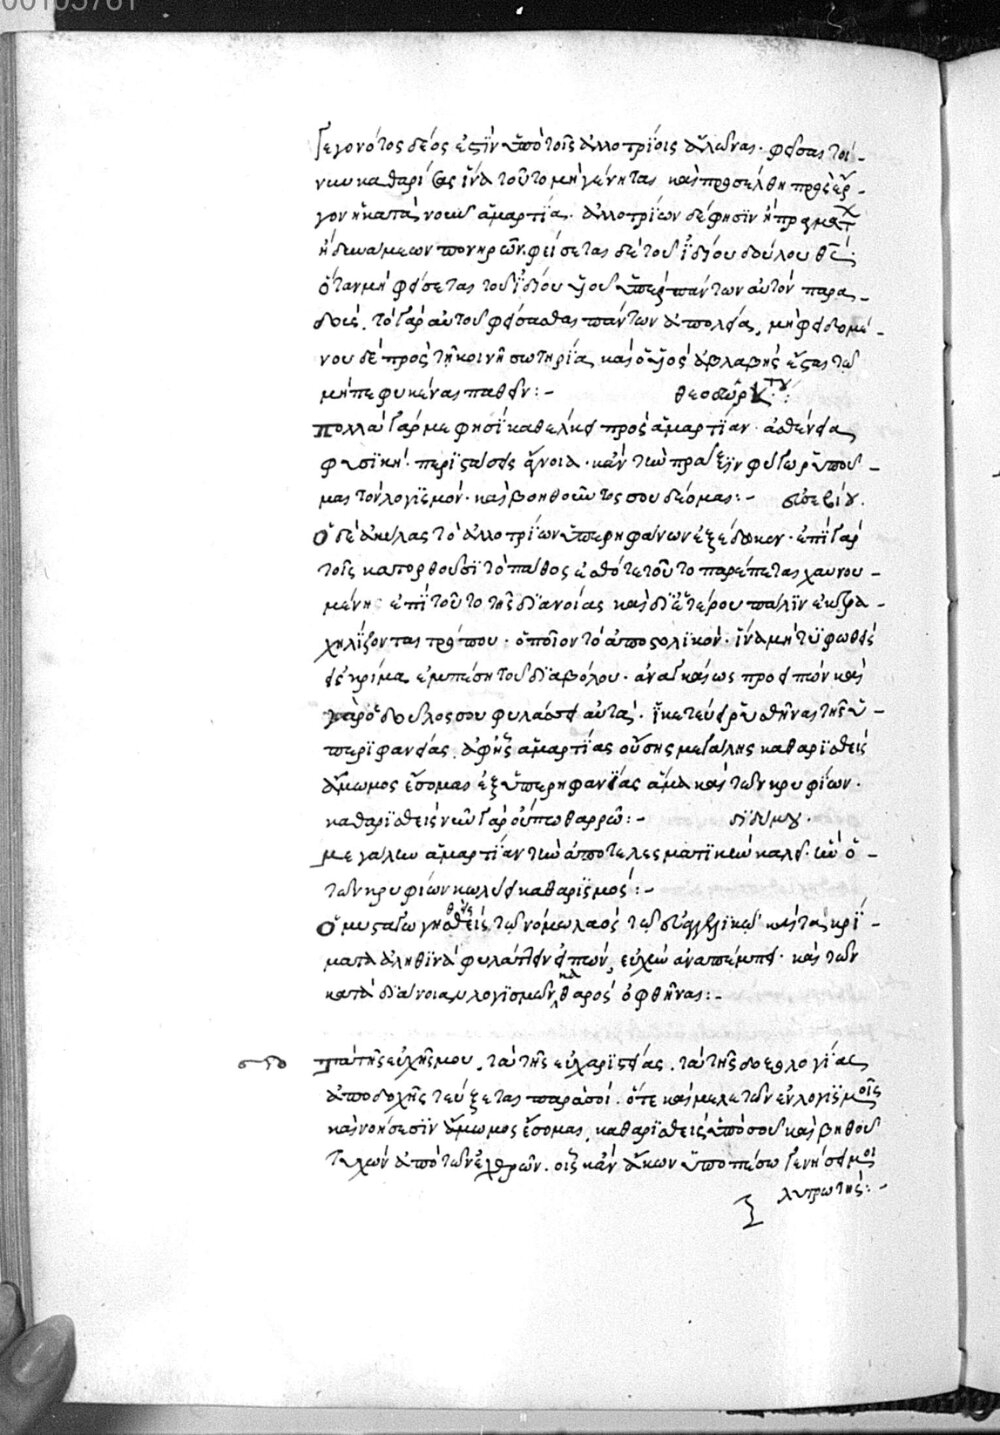 Γεγονότος δέος ἐστὶν ὑπὸ τοῖς ἀλλοτρίοις ἁλῶναι· φεῖσαι τοί-
νυν καθαρίσας ἵνα τοῦτο μὴ γένηται καὶ προσέλθῃ πρὸς ἔρ-
γον ἢ κατὰ νοῦν ἁμαρτία. ἀλλοτρίων δέ φησιν ἢ πραγμάτ
ἢ δυνάμεων πονηρῶν. φείσεται δὲ τοῦ ἰδίου δούλου θς·
ὅταν μὴ φείσεται τοῦ ἰδίου υἱοῦ ὑπὲρ πάντων αὐτὸν παρα-
δούς. τὸ γὰρ αὐτοῦ φείσασθαι πάντων ἀπολεῖ, μὴ φειδομέ-
νου δὲ πρὸς τῇ κοινῇ σωτηρίᾳ καὶ ὁ υἱὸς ἀβλαβὴς ἔσται τῷ
μὴ πεφυκέναι παθεῖν:- θεοδωρ
Πολλὰ γάρ με φησὶ καθέλκει πρὸς ἁμαρτίαν· ἀσθένεια
φυσική· περίστασις ἄγνοια· κἂν τὴν πρᾶξιν φύγω ῥύπου-
μαι τὸν λογισμόν· καὶ βοηθοῦντός σου δέομαι:- εὐσεβίου.
Ὁ δὲ ἀκύλας τὸ ἀλλοτρίων ὑπερηφάνων ἐξέδωκεν· ἐπὶ γὰρ
τοῖς κατορθοῦσι τὸ πάθος ἔσθ' ὅτε τοῦτο παρέπεται χαυνου-
μένης ἐπὶ τοῦτο τῆς διανοίας καὶ δι' ἑτέρου πάλιν ἐκτρα-
χηλίζονται τρόπου· ὁποῖον τὸ ἀποστολικόν· ἵνα μὴ τυφωθεὶς
εἰς κρίμα ἐμπέσῃ τοῦ διαβόλου· ἀναγκαίως προειπὼν καὶ
γὰρ ὁ δοῦλός σου φυλάσσει αὐτά· ἱκετεύει ῥυσθῆναι τῆς ὑ-
περιφανείας. ἀφ' ἧς ἁμαρτίας οὔσης μεγάλης καθαρισθεὶς
ἄμωμος ἔσομαι ἐξ ὑπερηφανείας ἅμα καὶ τῶν κρυφίων·
καθαρισθεὶς νῦν γὰρ οὔπω θαρρῶ:- διδύμου·
Μεγάλην ἁμαρτίαν τὴν ἀποτελεσματικὴν καλεῖ· ἣν ὁ-
τῶν κρυφίων κωλύει καθαρισμός:-
Ὁ μυσταγωγηθεὶς τῷ νόμῳ λαὸς τῷ εὐαγγελικῷ καὶ τὰ κρί-
ματα ἀληθινὰ φυλάττειν εἰπών, εὐχὴν ἀναπέμπει· καὶ τῶν
κατὰ διάνοιαν λογισμῶν καθαρὸς ὀφθῆναι:-
Τὰ τῆς εὐχῆς μου. τὰ τῆς εὐχαριστίας. τὰ τῆς δοξολογίας
ἀποδοχῆς τεύξεται παρὰ σοί. ὅτε καὶ μελετῶν ἐν λογισμοῖς
καὶ νοήσεσιν ἄμωμος ἔσομαι, καθαρισθεὶς ὑπὸ σοῦ καὶ βοηθοῦ
τυχὼν ἀπὸ τῶν ἐχθρῶν. οἷς κἂν ἄκων ὑποπέσω γενήσει μοι
λυτρωτής:-